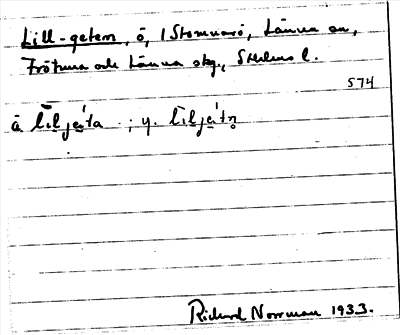 Lill-geten, ö, i Stomnarö, Länna sn,
Frötuna och Länna skg., Sthlms l.
574
å lìljéta ; y. lìljétn̥
Richard Norrman 1933.